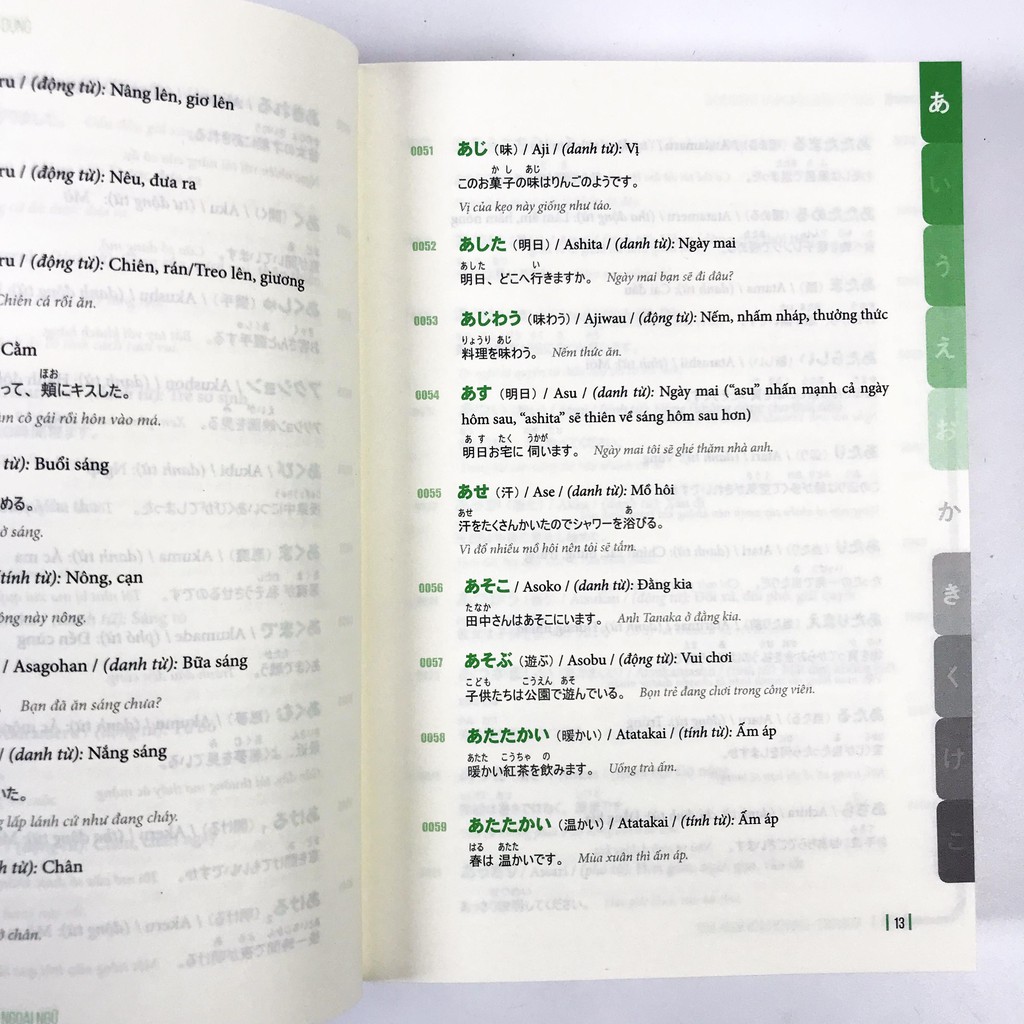 DỤNG
ru / (động từ): Nâng lên, giơ lên
ru / (động từ): Nêu, đưa ra
ru / (động từ): Chiên, rán/Treo lên, giương
Chiên cá rồi ăn.
Cằm
ほお
って、頬にキスした。
cô gái rồi hôn vào má.
từ): Buổi sáng
める。
sáng.
(tính từ): Nông, cạn
này nông.
/ Asagohan / (danh từ): Bữa sáng
Bạn đã ăn sáng chưa?
/ (danh từ): Nắng sáng
いた。
lấp lánh cứ như đang cháy.
từ): Chân
chân.
NGOẠI NGỮ
0051 あじ (味) / Aji / (danh từ): Vị
かし あじ
このお菓子の味はりんごのようです。
Vị của kẹo này giống như táo.
0052 あした (明日) / Ashita / (danh từ): Ngày mai
あした い
明日、どこへ行きますか。 Ngày mai bạn sẽ đi đâu?
0053 あじわう (味わう) / Ajiwau / (động từ): Nếm, nhấm nháp, thưởng thức
りょうり あじ
料理を味わう。 Nếm thức ăn.
0054 あす (明日) / Asu / (danh từ): Ngày mai (“asu” nhấn mạnh cả ngày
hôm sau, “ashita” sẽ thiên về sáng hôm sau hơn)
あす たく うかが
明日お宅に 伺います。 Ngày mai tôi sẽ ghé thăm nhà anh.
0055 あせ (汗) / Ase / (danh từ): Mồ hôi
あせ あ
汗をたくさんかいたのでシャワーを浴びる。
Vì đổ nhiều mồ hôi nên tôi sẽ tắm.
0056 あそこ / Asoko / (danh từ): Đằng kia
たなか
田中さんはあそこにいます。 Anh Tanaka ở đằng kia.
0057 あそぶ (遊ぶ) / Asobu / (động từ): Vui chơi
こども こうえん あそ
子供たちは公園で遊んでいる。 Bọn trẻ đang chơi trong công viên.
0058 あたたかい (暖かい) / Atatakai / (tính từ): Ấm áp
あたた こうちゃ の
暖かい紅茶を飲みます。 Uống trà ấm.
0059 あたたかい (温かい) / Atatakai / (tính từ): Ấm áp
はる あたた
春は 温かいです。 Mùa xuân thì ấm áp.
13
あ
い
う
え
お
か
き
く
け
こ